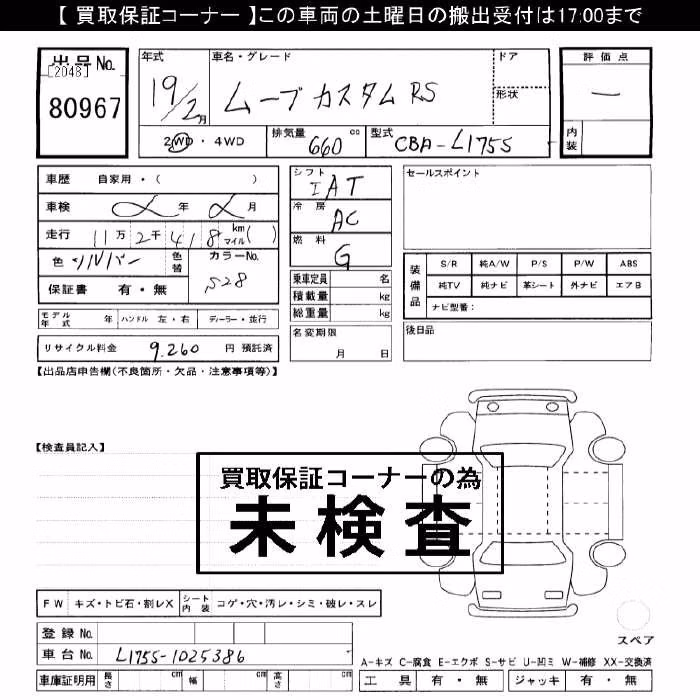 【 買取保証コーナー 】この車両の土曜日の搬出受付は17:00まで
出品No.
[2048]
80967
年式
19/2月
車名・グレード
ムーブカスタム RS
ドア
形状
評価点
—
内装
2WD・4WD
排気量
660 cc
型式
CBA-L175S
車歴 自家用・( )
車検 年 月
走行 11万2千418 km マイル( )
色 シルバー 色替
カラーNo.
S28
保証書 有・無
シフト
IAT
冷房
AC
燃料
G
乗車定員 名
積載量 kg
総重量 kg
セールスポイント
装備品
S/R 純A/W P/S P/W ABS
純TV 純ナビ 革シート 外ナビ エアB
ナビ型番:
モデル年式 年 ハンドル 左・右 ディーラー・並行
名変期限
月 日
後日品
リサイクル料金 9,260 円 預託済
【出品店申告欄(不良箇所・欠品・注意事項等)】
【検査員記入】
買取保証コーナーの為
未検査
FW キズ・トビ石・割レX シート内装 コゲ・穴・汚レ・シミ・破レ・スレ
登録No.
車台No. L175S-1025386
車庫証明用 長さ cm 幅 cm 高さ cm
スペア
A-キズ C-腐食 E-エクボ S-サビ U-凹ミ W-補修 XX-交換済
工具 有・無 ジャッキ 有・無